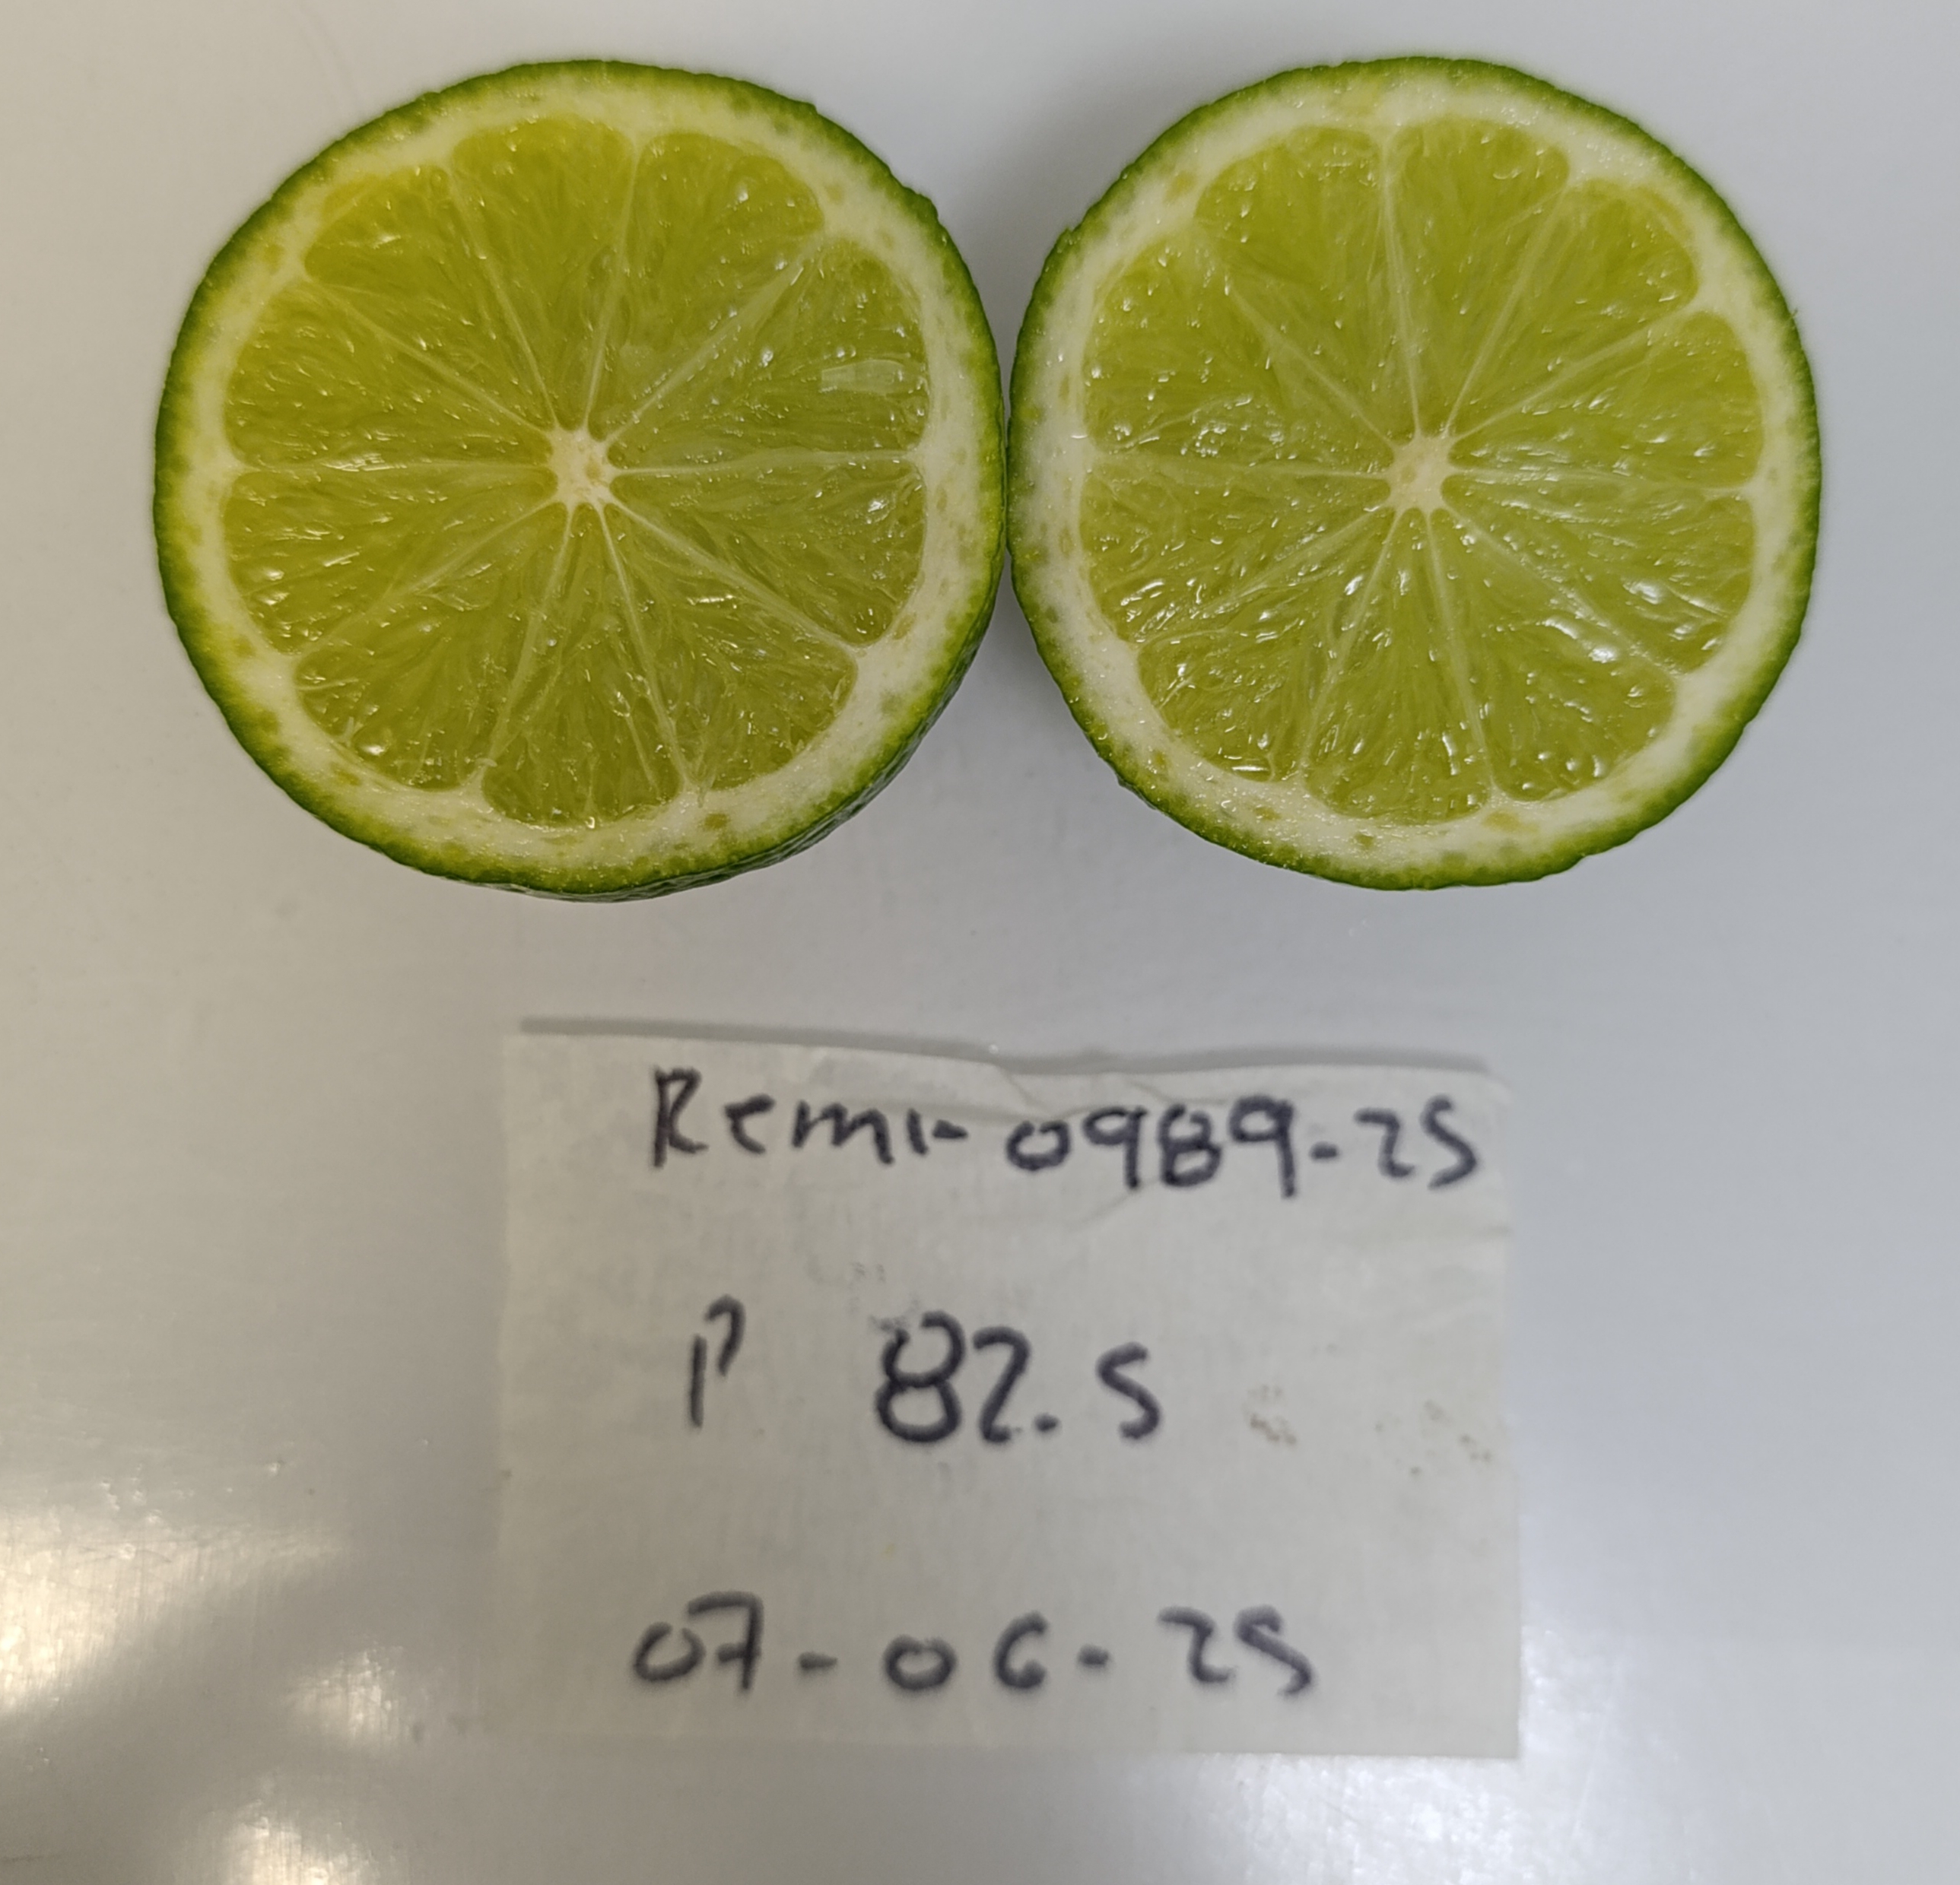 Remi-0989-25
P 82.5
07-06-25